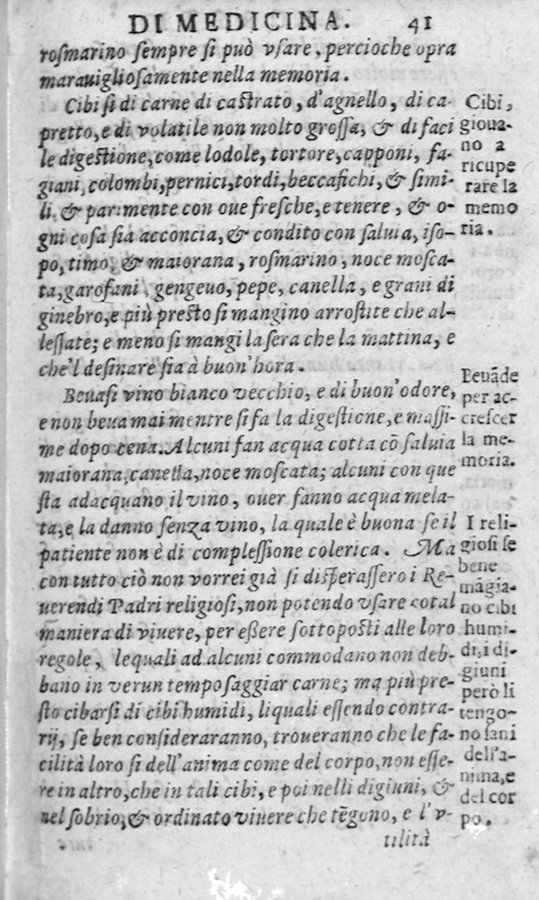 DI MEDICINA. 41
rosmarino sempre si può vsare, percioche opra
marauigliosamente nella memoria.
Cibisi di carne di castrato, d'agnello, di ca-
pretto, e di volatile non molto grossa, & di faci
le digestione, come lodole, tortore, capponi, fa-
giani, colombi, pernici, tordi, beccafichi, & simi-
li, & parimente con oue fresche, e tenere, & o-
gni cosa sia acconcia, & condito con saluia, iso-
po, timo, & maiorana, rosmarino, noce mosca-
ta, garofani, gengeuo, pepe, canella, e grani di
ginebro, e più presto si mangino arrostite che al-
lessate; e meno si mangi la sera che la mattina, e
che'l desinare sia à buon'hora.
Beuasi vino bianco vecchio, e di buon'odore,
e non beua mai mentre si fa la digestione, e massi-
me dopo cena. Alcuni fan acqua cotta cõ saluia
maiorana, canella, noce moscata; alcuni con que
sta adacquano il vino, ouer fanno acqua mela-
ta, e la danno senza vino, la quale è buona se il
patiente non è di complessione colerica. Ma
con tutto ciò non vorrei già si disperassero i Re-
uerendi Padri religiosi, non potendo vsare cotal
maniera di viuere, per eßere sottoposti alle loro
regole, lequali ad alcuni commodano non deb-
bano in verun tempo saggiar carne; ma più pre-
sto cibarsi di cibi humidi, liquali essendo contra-
rij, se ben consideraranno, troueranno che le fa-
cilità loro si dell'anima come del corpo, non esse-
re in altro, che in tali cibi, e poi nelli digiuni, &
nel sobrio, & ordinato viuere che tẽgono, e l'v-
tilità
Cibi,
gioua-
no a
ricupe
rare la
memo
ria.
Beuãde
per ac-
crescer
la me-
moria.
I reli-
giosi se
bene
magia-
no cibi
humi-
di, i di-
giuni
però li
tengo-
no sani
dell'a-
nima, e
del cor
po.